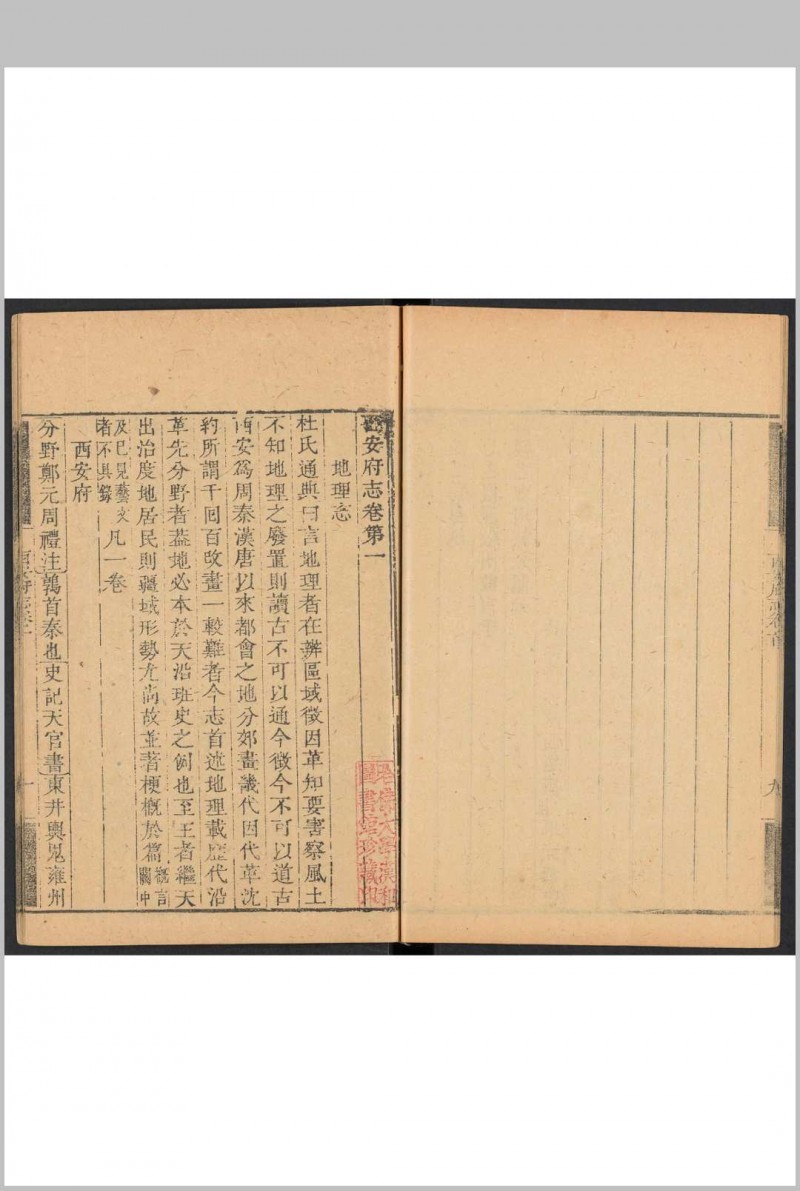 西安府志卷第一
地理志
杜氏通典曰言地理者在辨區域徵因革知要害察風土
不知地理之廢置則讀古不可以通今徵今不可以道古
西安爲周秦漢唐以來都會之地分郊畫畿代因代革沈
約所謂千回百改畫一較難者今志首述地理載歷代沿
革先分野者葢地必本於天沿班史之例也至王者繼天
出治度地居民則疆域形勢尤尚故並著梗槪於篇槪言關中
及已見藝文者不具錄凡一卷
西安府
分野鄭元周禮注鶉首秦也史記天官書東井輿鬼雍州
西安府志卷一
一
哈佛大學漢和圖書館珍藏印
西安府志卷首
九